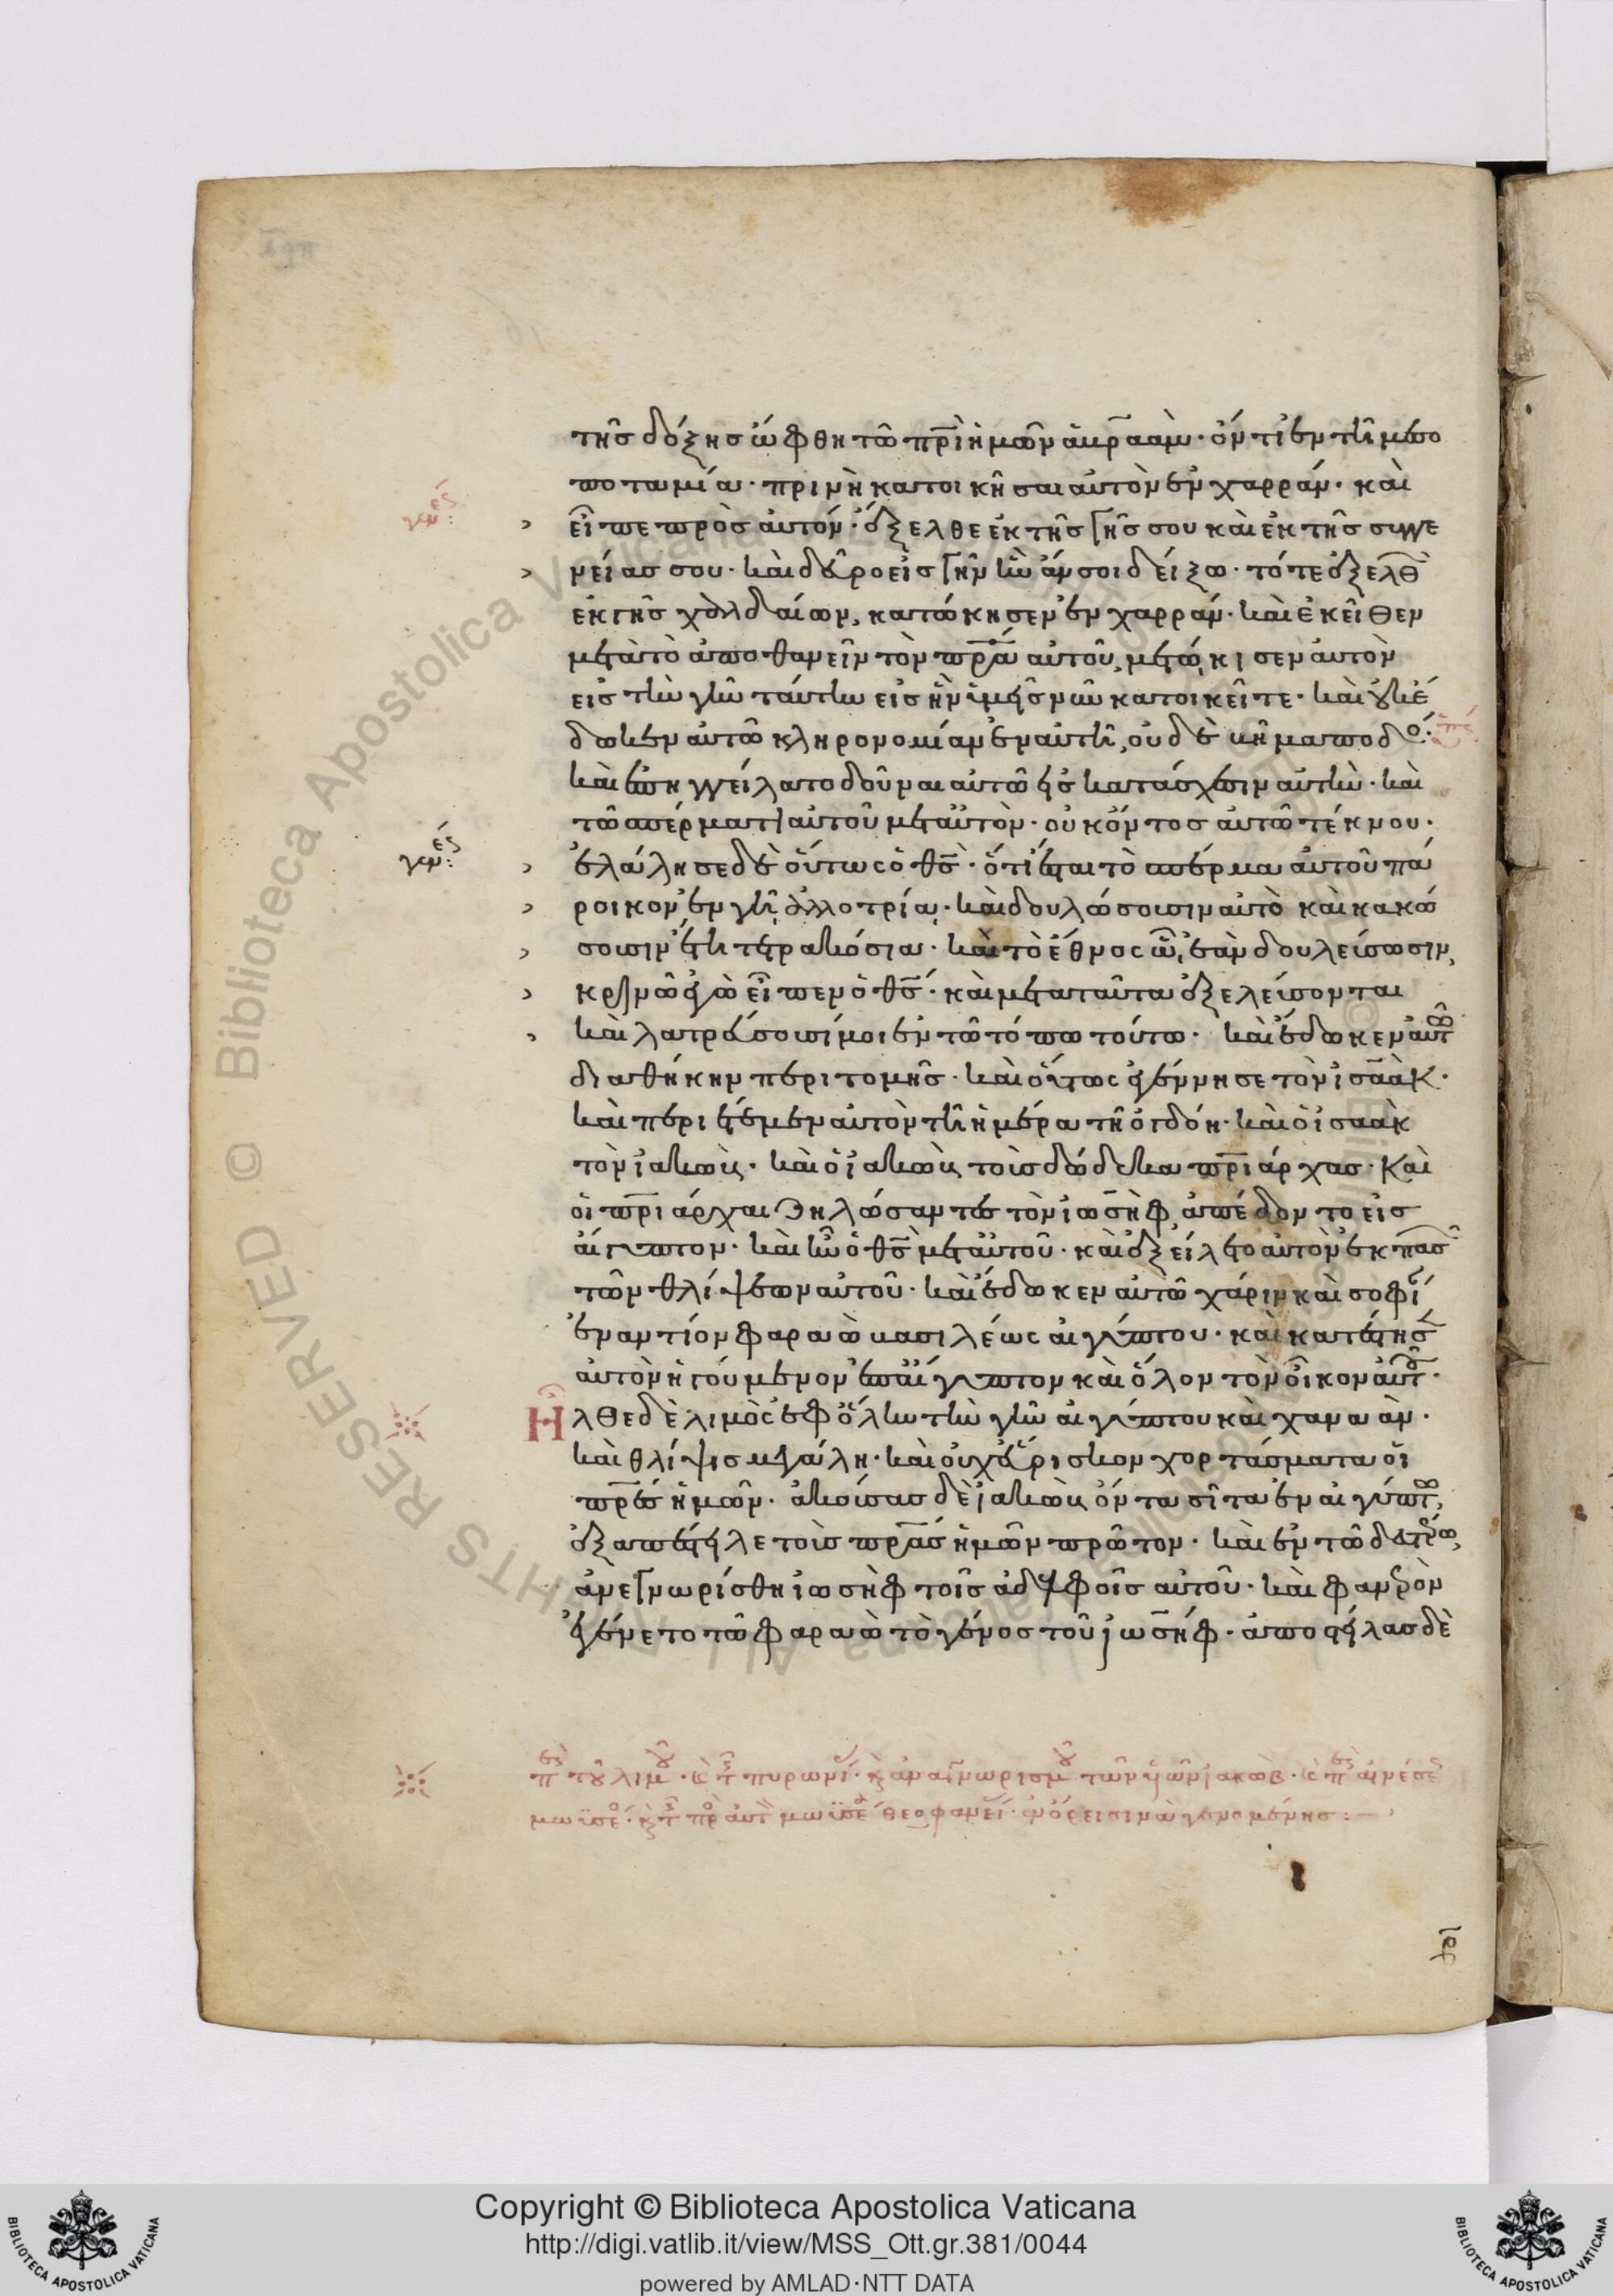 τῆς δόξης ὤφθη τῶ πρὶ ἡμῶν ἀβραάμ· ὄντι ἐν τῆ μεσο
ποταμία· πρινὴ κατοικῆσαι αὐτὸν ἐν χαρράν· καὶ
εἶπε πρὸς αὐτόν· ἔξελθε ἐκ τῆς γῆς σου καὶ ἐκ τῆς συγγε
νείας σου· καὶ δεῦρο εἰς γῆν ἣν ἄν σοι δείξω· τότε ἐξελθ
ἐκ γῆς χαλδαίων, κατώκησεν ἐν χαρράν· καὶ ἐκεῖθεν
μετὰ τὸ ἀποθανεῖν τὸν πρα αὐτοῦ, μετώκισεν αὐτὸν
εἰς τὴν γῆν ταύτην εἰς ἣν ὑμεῖς νῦν κατοικεῖτε· καὶ οὐκ ἔ
δωκεν αὐτῶ κληρονομίαν ἐν αὐτῆ, οὐδὲ βῆμα ποδό·
καὶ ἐπηγγείλατο δοῦναι αὐτῶ εἰς κατάσχεσιν αὐτὴν· καὶ
τῶ σπέρματι αὐτοῦ μετ αὐτὸν· οὐκ ὄντος αὐτῶ τέκνου·
γεν
ἐλάλησε δὲ οὕτως ὁ θς· ὅτι ἔσται τὸ σπέρμα αὐτοῦ πά
ροικον ἐν γῆ ἀλλοτρία· καὶ δουλώσουσιν αὐτὸ καὶ κακώ
σουσιν ἔτη τετρακόσια· καὶ τὸ ἔθνος ὧ ἐὰν δουλεύσωσιν,
κρινῶ ἐγὼ εἶπεν ὁ θς· καὶ μετὰ ταῦτα ἐξελεύσονται
καὶ λατρεύσουσί μοι ἐν τῶ τόπω τούτω· καὶ ἔδωκεν αὐτῶ
διαθήκην περιτομῆς· καὶ οὕτως ἐγέννησε τὸν ἰσαὰκ·
καὶ περιέτεμεν αὐτὸν τῆ ἡμέρα τῆ ὀγδόη· καὶ ὁ ἰσαὰκ
τὸν ἰακώβ· καὶ ὁ ἰακὼβ τοὺς δώδεκα πριάρχας· Καὶ
οἱ πριάρχαι ζηλώσαντες τὸν ἰωσὴφ, ἀπέδοντο εἰς
αἴγυπτον· καὶ ἦν ὁ θς μετ αὐτοῦ· καὶ ἐξείλετο αὐτὸν ἐκ πασ
τῶν θλίψεων αὐτοῦ· καὶ ἔδωκεν αὐτῶ χάριν καὶ σοφί
ἐναντίον φαραὼ βασιλέως αἰγύπτου· καὶ κατέστησ
αὐτὸν ἡγούμενον ἐπ αἴγυπτον καὶ ὅλον τὸν οἶκον αὐτ·
Ἦλθε δὲ λιμὸς ἐφ ὅλην τὴν γῆν αἰγύπτου καὶ χαναάν·
καὶ θλίψις μεγάλη· καὶ οὐχ εὕρισκον χορτάσματα οἱ
πρες ἡμῶν· ἀκούσας δὲ ἰακὼβ ὄντα σῖτα ἐν αἰγύπτω,
ἐξαπέστειλε τοὺς πρας ἡμῶν πρῶτον· καὶ ἐν τῶ δευτέρω,
ἀνεγνωρίσθη ἰωσὴφ τοῖς ἀδελφοῖς αὐτοῦ· καὶ φανερὸν
ἐγένετο τῶ φαραὼ τὸ γένος τοῦ ἰωσήφ· ἀποστείλας δὲ
Copyright © Biblioteca Apostolica Vaticana
http://digi.vatlib.it/view/MSS_Ott.gr.381/0044
powered by AMLAD·NTT DATA